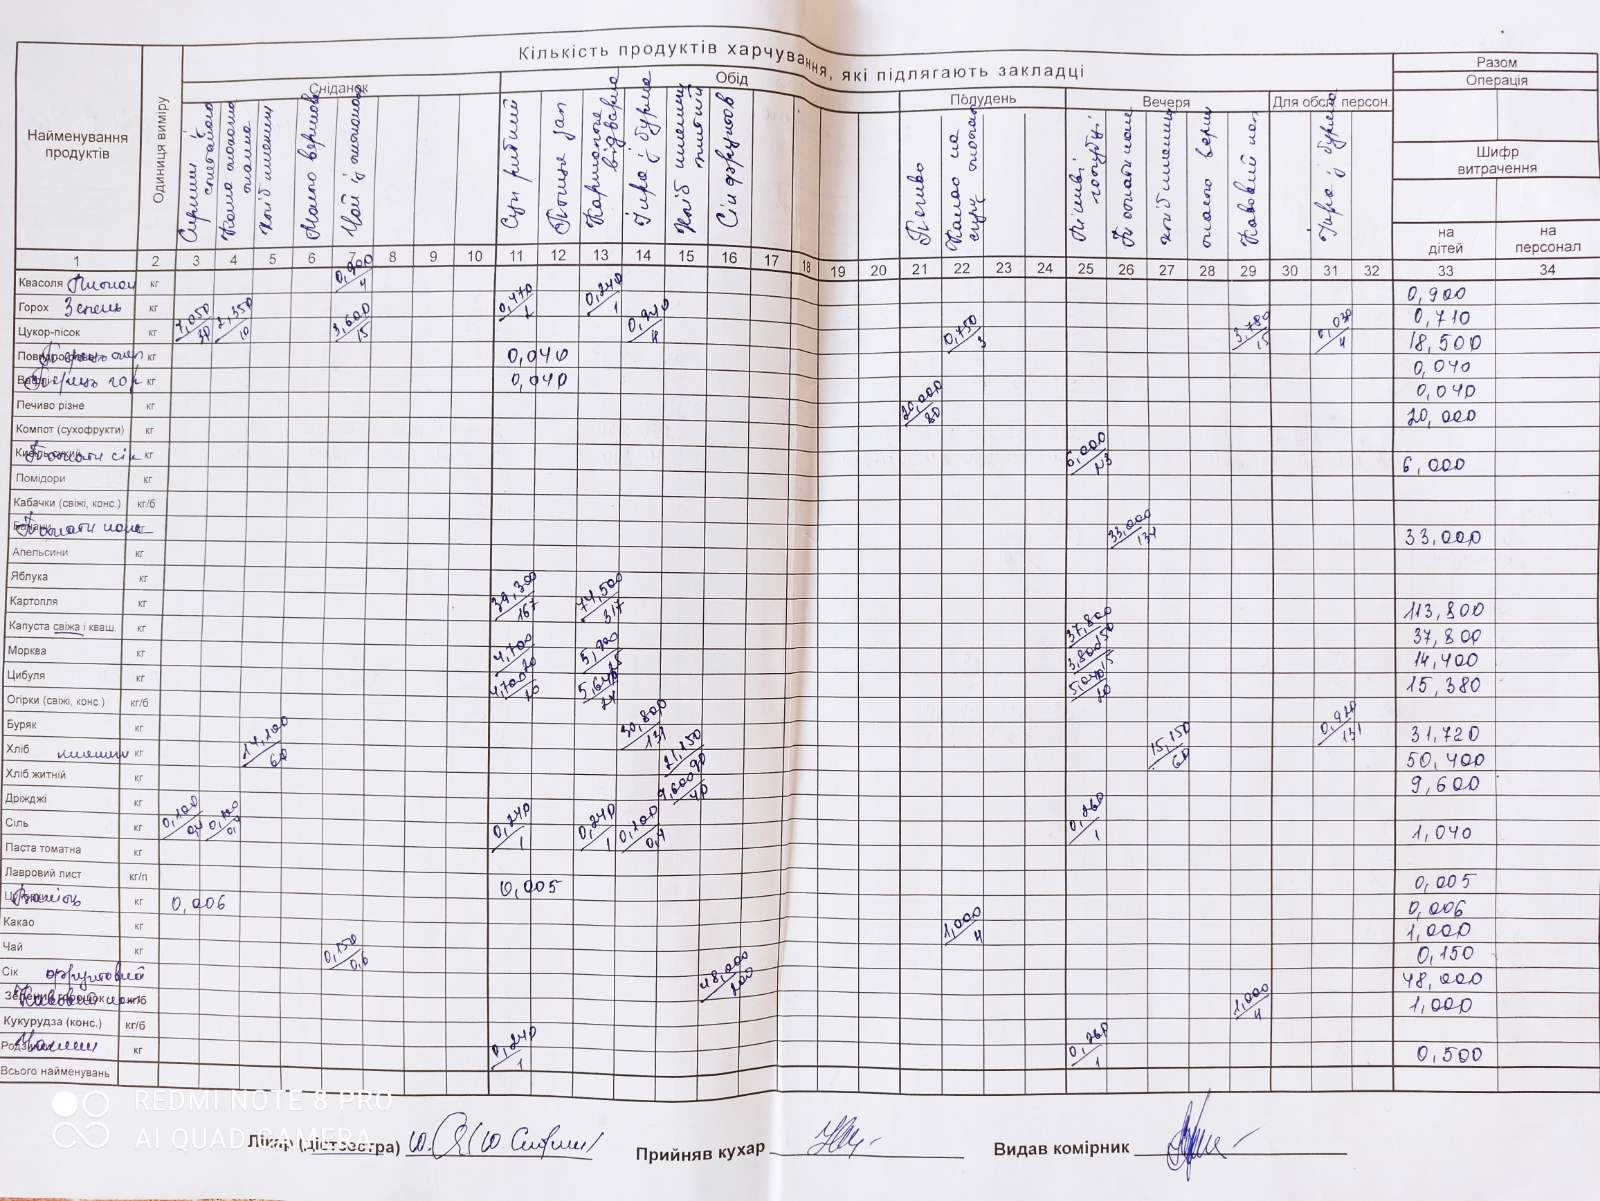 Кількість продуктів харчування, які підлягають закладці
Найменування продуктів
Одиниця виміру
Сніданок
Обід
Полудень
Вечеря
Для обсл. персон
Разом
Операція
Шифр витрачення
на дітей
на персонал
Хліб пшеничн
Масло вершков
Суп рибний
Птиця зап
Картопля відварна
Ікра з буряка
Сік фруктов
Печиво
Какао на
Ікра з буряка
1 2 3 4 5 6 7 8 9 10 11 12 13 14 15 16 17 18 19 20 21 22 23 24 25 26 27 28 29 30 31 32 33 34
Квасоля Лимон кг 0,900/4 0,900
Горох Зелень кг 0,470/2 0,240/1 0,710
Цукор-пісок кг 7,050/30 2,350/10 3,600/15 0,940/4 0,750/3 3,780/15 18,500
кг 0,040 0,040
Перець гор кг 0,040 0,040
Печиво різне кг 20,000/80 20,000
Компот (сухофрукти) кг
Томатн сік кг 6,000 6,000
Помідори кг
Кабачки (свіжі, конс.) кг/б
Томати кг 33,000/131 33,000
Апельсини кг
Яблука кг
Картопля кг 39,300/167 74,500/317 113,800
Капуста свіжа і кваш. кг 37,800/150 37,800
Морква кг 4,700/20 5,900/25 3,800/15 14,400
Цибуля кг 4,700/20 5,640/24 5,040/20 15,380
Огірки (свіжі, конс.) кг/б
Буряк кг 30,800/131 0,920/131 31,720
Хліб пшеничн кг 14,100/60 21,150/90 15,150/60 50,400
Хліб житній кг 9,600/40 9,600
Дріжджі кг
Сіль кг 0,100/0,4 0,100/0,4 0,240/1 0,240/1 0,100/0,4 0,260/1 1,040
Паста томатна кг
Лавровий лист кг/п 0,005 0,005
Ваніль кг 0,006 0,006
Какао кг 1,000/4 1,000
Чай кг 0,150/0,6 0,150
Сік фруктовий 48,000/200 48,000
Кавовий кг/б 1,000/4 1,000
Кукурудза (конс.) кг/б
кг 0,240/1 0,260/1 0,500
Всього найменувань
REDMI NOTE 8 PRO
AI QUAD CAMERA
Лікар (дієтсестра)
Прийняв кухар
Видав комірник